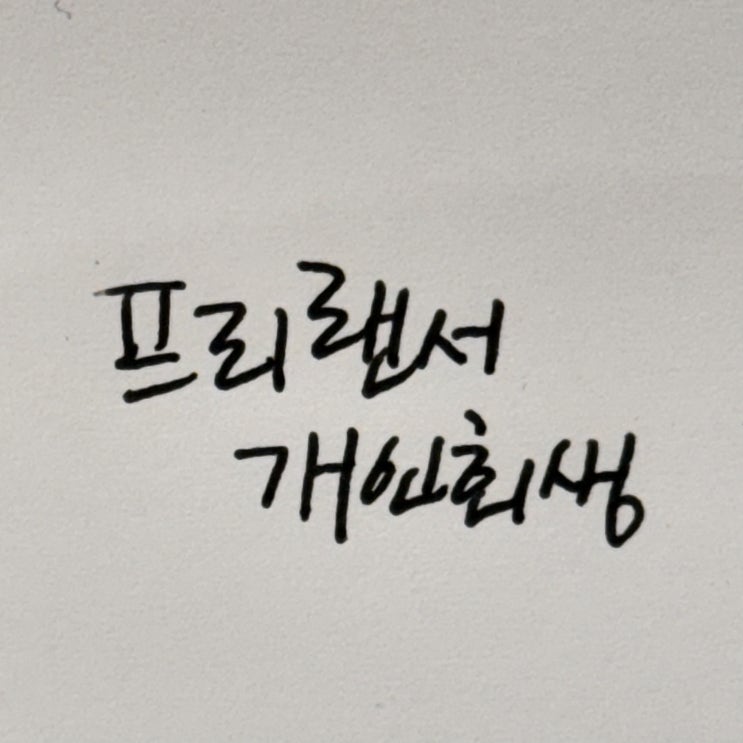 프리랜서
개인회생